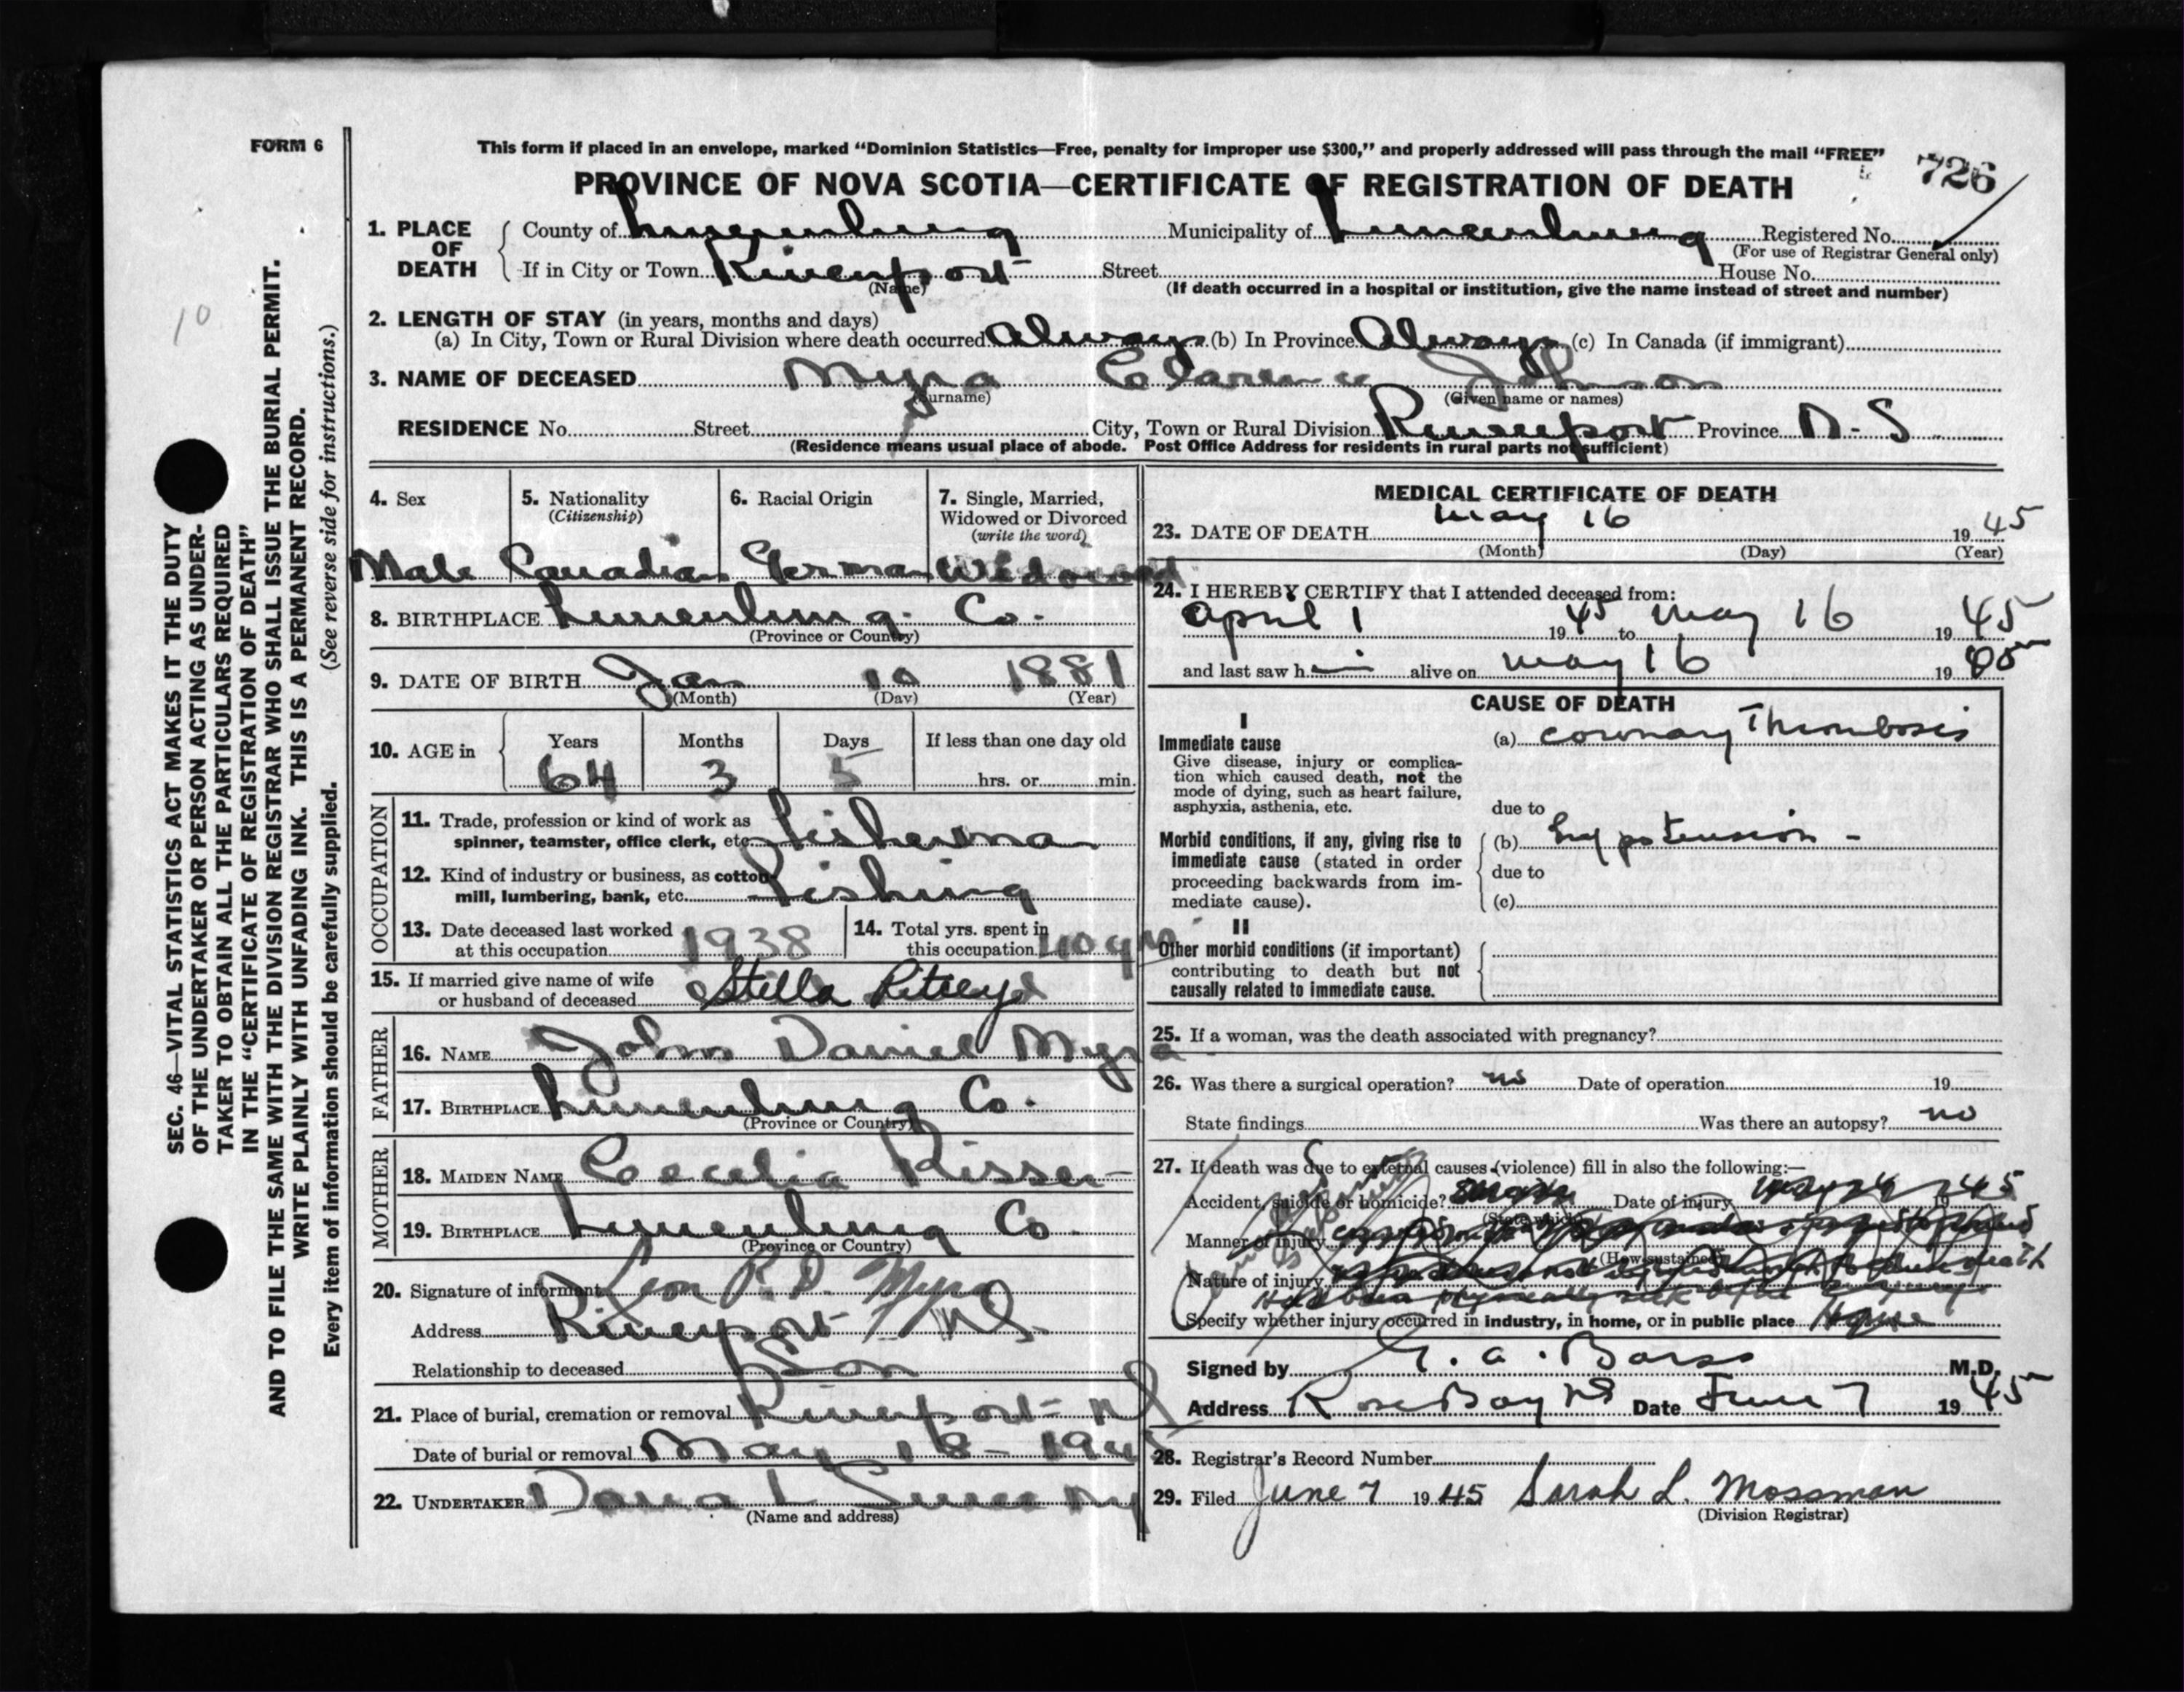 FORM 6
This form if placed in an envelope, marked “Dominion Statistics—Free, penalty for improper use $300,” and properly addressed will pass through the mail “FREE”
726
PROVINCE OF NOVA SCOTIA—CERTIFICATE OF REGISTRATION OF DEATH
1. PLACE OF DEATH
County of Lunenburg Municipality of Lunenburg Registered No.
(For use of Registrar General only)
If in City or Town Riverport Street House No.
(Name)
(If death occurred in a hospital or institution, give the name instead of street and number)
2. LENGTH OF STAY (in years, months and days)
(a) In City, Town or Rural Division where death occurred Always (b) In Province Always (c) In Canada (if immigrant)
3. NAME OF DECEASED Myra Clarence Johnson
(Surname) (Given name or names)
RESIDENCE No. Street City, Town or Rural Division Riverport Province N-S
(Residence means usual place of abode. Post Office Address for residents in rural parts not sufficient)
4. Sex
Male
5. Nationality
(Citizenship)
Canadian
6. Racial Origin
German
7. Single, Married, Widowed or Divorced
(write the word)
Widowed
8. BIRTHPLACE Lunenburg Co.
(Province or Country)
9. DATE OF BIRTH Jan 10 1881
(Month) (Day) (Year)
10. AGE in
Years Months Days If less than one day old
64 3 5 hrs. or min.
OCCUPATION
11. Trade, profession or kind of work as
spinner, teamster, office clerk, etc. Fisherman
12. Kind of industry or business, as cotton
mill, lumbering, bank, etc. Fishing
13. Date deceased last worked
at this occupation 1938
14. Total yrs. spent in
this occupation 40 yrs
15. If married give name of wife
or husband of deceased Stella Ritcey
FATHER
16. NAME John Daniel Myra
17. BIRTHPLACE Lunenburg Co.
(Province or Country)
MOTHER
18. MAIDEN NAME Cecelia Risser
19. BIRTHPLACE Lunenburg Co.
(Province or Country)
20. Signature of informant R. D. Myra
Address Riverport NS.
Relationship to deceased Son
21. Place of burial, cremation or removal Riverport - NS
Date of burial or removal May 18 - 1945
22. UNDERTAKER
(Name and address)
MEDICAL CERTIFICATE OF DEATH
23. DATE OF DEATH May 16 1945
(Month) (Day) (Year)
24. I HEREBY CERTIFY that I attended deceased from:
April 1 1945 to May 16 1945
and last saw him alive on May 16 1945
CAUSE OF DEATH
I
Immediate cause
Give disease, injury or complica-
tion which caused death, not the
mode of dying, such as heart failure,
asphyxia, asthenia, etc.
(a) coronary Thrombosis
due to
Morbid conditions, if any, giving rise to
immediate cause (stated in order
proceeding backwards from im-
mediate cause).
(b) hypotension -
due to
(c)
II
Other morbid conditions (if important)
contributing to death but not
causally related to immediate cause.
25. If a woman, was the death associated with pregnancy?
26. Was there a surgical operation? no Date of operation 19
State findings Was there an autopsy? no
27. If death was due to external causes (violence) fill in also the following:—
Accident, suicide or homicide? Date of injury 1945
(State which)
Manner of injury
(How sustained)
Nature of injury
Specify whether injury occurred in industry, in home, or in public place
Signed by G. A. Barss M.D.
Address Rose Bay NS Date June 7 1945
28. Registrar's Record Number
29. Filed June 7 1945 Sarah L. Mossman
(Division Registrar)
10
SEC. 46—VITAL STATISTICS ACT MAKES IT THE DUTY
OF THE UNDERTAKER OR PERSON ACTING AS UNDER-
TAKER TO OBTAIN ALL THE PARTICULARS REQUIRED
IN THE “CERTIFICATE OF REGISTRATION OF DEATH”
AND TO FILE THE SAME WITH THE DIVISION REGISTRAR WHO SHALL ISSUE THE BURIAL PERMIT.
WRITE PLAINLY WITH UNFADING INK. THIS IS A PERMANENT RECORD.
Every item of information should be carefully supplied. (See reverse side for instructions.)